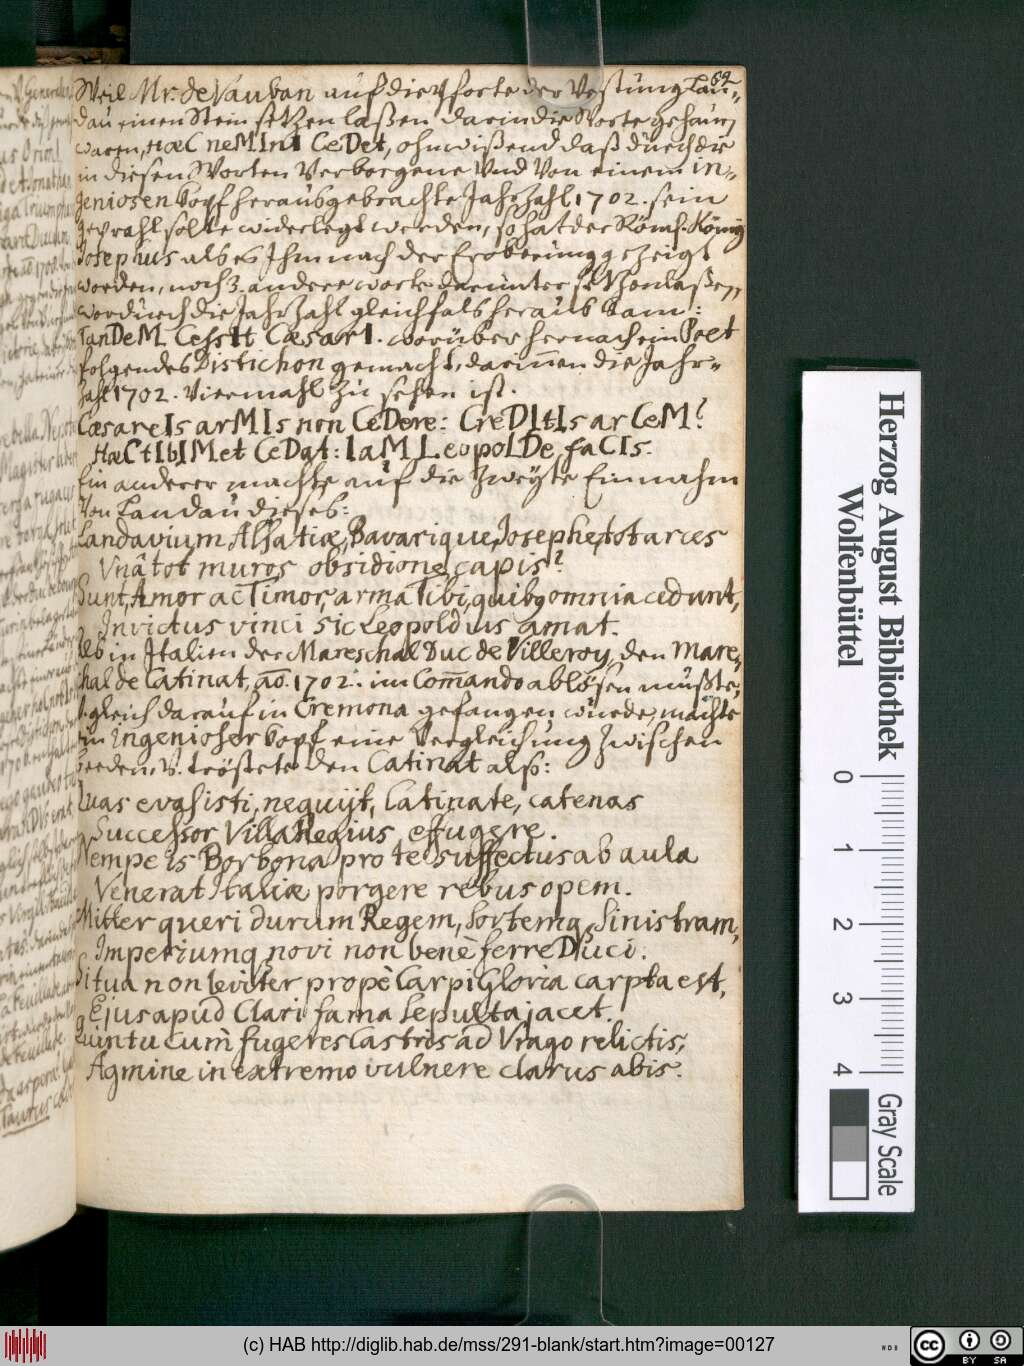 64
Weil Mr. de Vauban auf die Pforte der Vestung Lan-
dau einen Stein setzen laßen darin die Worte gehaue͂
waren, HæC neMInI CeDet, ohnwißend daß durch die
in diesen Worten Verborgene Und Von einem in-
geniosen Kopf heraus gebrachte Jahrzahl 1702. sein
geprahl solte widerlegt werden, so hat der Röm. König
Josephus als es Ihm nach der Eroberung gezeigt
worden, noch 3. andere worte darunter setzen laßen,
wordurch die Jahrzahl gleichfals heraus kam:
TanDeM CessIt CæsarI. worüber hernach ein Poet
folgendes Distichon gemacht, darinnen die Jahr-
zahl 1702. Viermahl zu sehen ist.
CæsareIs arMIs non CeDere: CreDItIs arCeM?
HæC tIbI Met CeDat: IaM LeopoLDe faCIs.
Ein anderer machte auf die zweyte Einnahm
Von Landau dieses:
Landavium Alsatiæ, Bavarique, Josephe, tot arces
Unâ tot muros obsidione capis?
Sunt, Amor ac Timor, arma Tibi, quibq omnia cedunt,
Invictus vinci sic Leopoldus amat.
Als in Italien der Mareschal Duc de Villeroy, den Mare-
chal de Catinat, ao. 1702. im Com̄ando ablösen mußte,
u. gleich darauf in Cremona gefangen wurde, machte
ein Ingenioser Kopf eine Vergleichung zwischen
beeden, u. tröstete den Catinat also:
Quas evasisti, nequijt, Catinate, catenas
Successor Villa Regius effugere.
Nempe is Borbona pro te suffectus ab aula
Venerat Italiæ porgere rebus opem.
Mitte queri durum Regem, Sortemq Sinistram,
Imperiumq novi non benè ferre Duci.
Si tua non leviter propè Carpi Gloria carpta est,
Ejus apud Clari fama sepulta jacet.
Quin tu cum fugeres Castris ad Vrago relictis,
Agmine in extremo vulnere clarus abis.
Herzog August Bibliothek
Wolfenbüttel
0 1 2 3 4
Gray Scale
(c) HAB http://diglib.hab.de/mss/291-blank/start.htm?image=00127
WDB
cc BY SA